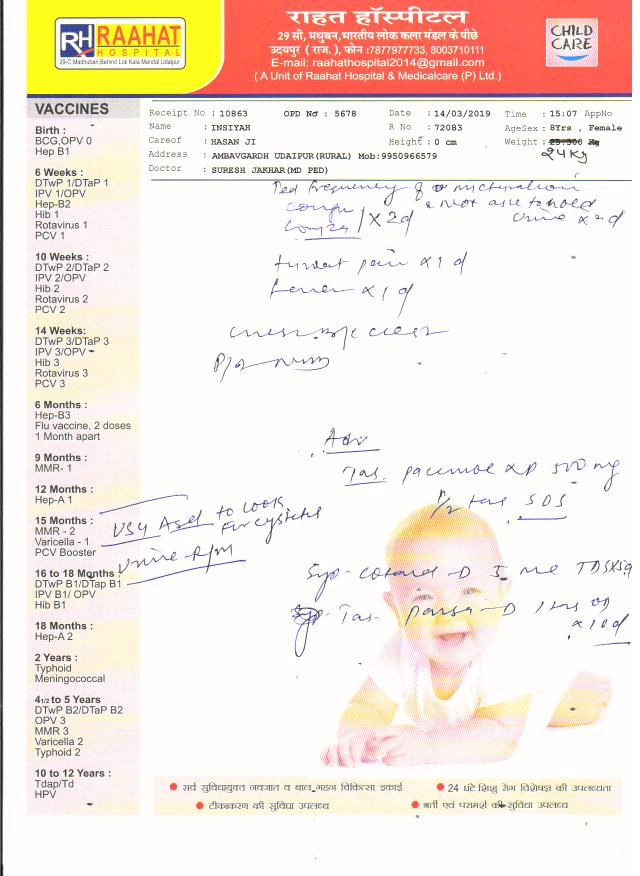 RH RAAHAT
HOSPITAL
29-C, Madhuban, Behind Lok Kala Mandal, Udaipur
राहत हॉस्पीटल
29 सी, मधुबन, भारतीय लोक कला मंडल के पीछे
उदयपुर ( राज. ), फोन :7877977733, 8003710111
E-mail: raahathospital2014@gmail.com
( A Unit of Raahat Hospital & Medicalcare (P) Ltd.)
CHILD
CARE
VACCINES
Birth :
BCG,OPV 0
Hep B1
6 Weeks :
DTwP 1/DTaP 1
IPV 1/OPV
Hep-B2
Hib 1
Rotavirus 1
PCV 1
10 Weeks :
DTwP 2/DTaP 2
IPV 2/OPV
Hib 2
Rotavirus 2
PCV 2
14 Weeks:
DTwP 3/DTaP 3
IPV 3/OPV
Hib 3
Rotavirus 3
PCV 3
6 Months :
Hep-B3
Flu vaccine, 2 doses
1 Month apart
9 Months :
MMR- 1
12 Months :
Hep-A 1
15 Months :
MMR - 2
Varicella - 1
PCV Booster
16 to 18 Months :
DTWP B1/DTap B1
IPV B1/ OPV
Hib B1
18 Months :
Hep-A 2
2 Years :
Typhoid
Meningococcal
4 1/2 to 5 Years
DTwP B2/DTaP B2
OPV 3
MMR 3
Varicella 2
Typhoid 2
10 to 12 Years :
Tdap/Td
HPV
Receipt No : 10863 OPD No : 5678 Date : 14/03/2019 Time : 15:07 AppNo
Name : INSIYAH R No : 72083 AgeSex : 8Yrs , Female
Careof : HASAN JI Height : 0 cm Weight : Kg
24 Kg
Address : AMBAVGARDH UDAIPUR(RURAL) Mob:9950966579
Doctor : SURESH JAKHAR(MD PED)
frequency of micturation
cough & not able to hold
x 2d urine x 2d
throat pain x 1 d
fever x 1 d
chest B/L clear
P/A
Adv
Tab. 500 mg
1/2 tab SOS
USG Abd to look
for cystitis
Urine R/M
Syp - -D 5 ml TDS x 5d
Tab. -D 1 tab OD
x 10d
सर्व सुविधायुक्त नवजात व बाल गहन चिकित्सा इकाई
24 घंटे शिशु रोग विशेषज्ञ की उपलब्धता
टीकाकरण की सुविधा उपलब्ध
भर्ती एवं परामर्श की सुविधा उपलब्ध